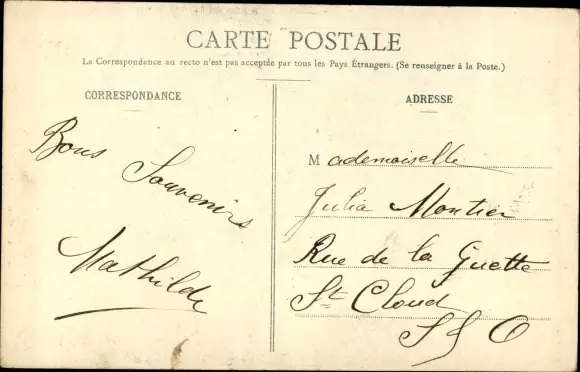 CARTE POSTALE
La Correspondance au recto n'est pas acceptée par tous les Pays Étrangers. (Se renseigner à la Poste.)
CORRESPONDANCE
Bons
Souvenirs
Mathilde
ADRESSE
Mademoiselle
Julia Montier
Rue de la Guette
St Cloud
S & O